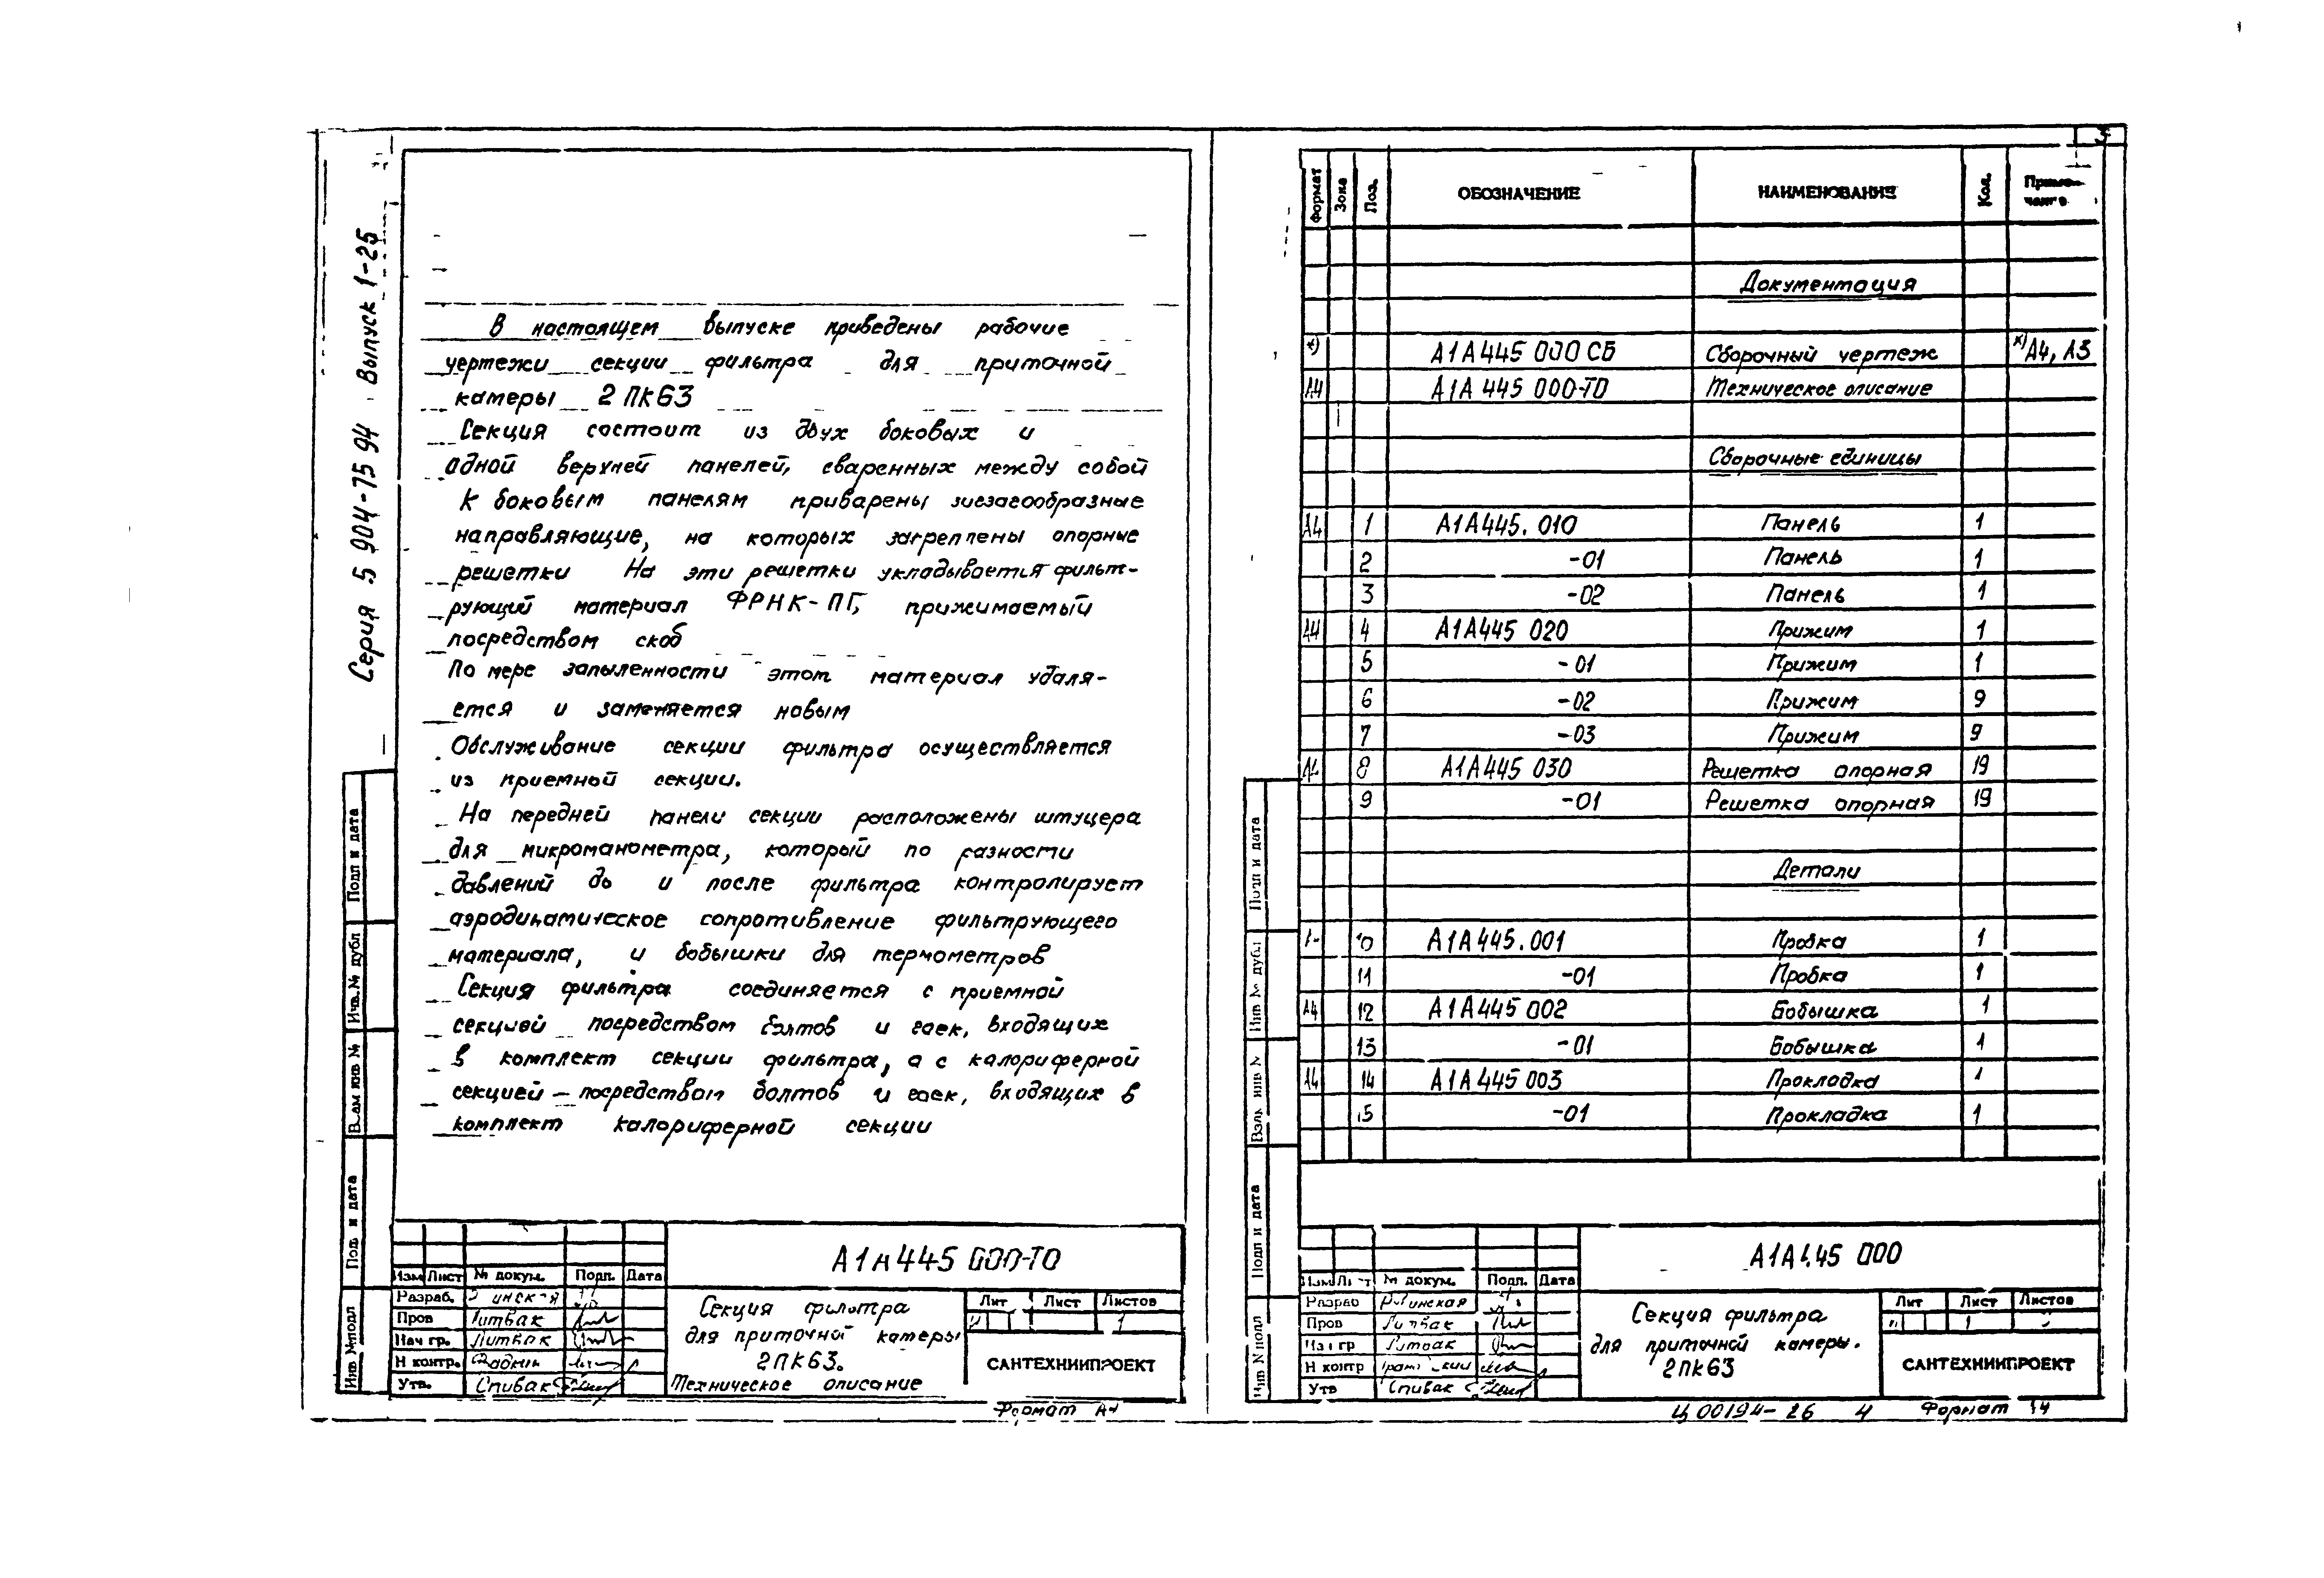 Серия 5 904-75 94 Выпуск 1-25
В настоящем выпуске приведены рабочие
чертежи секции фильтра для приточной
камеры 2ПК63
Секция состоит из двух боковых и
одной верхней панелей, сваренных между собой
К боковым панелям приварены зигзагообразные
направляющие, на которых загреплены опорные
решетки На эти решетки укладывается фильт-
рующий материал ФРНК-ПГ, прижимаемый
посредством скоб
По мере запыленности этот материал удаля-
ется и заменяется новым
Обслуживание секции фильтра осуществляется
из приемной секции.
На передней панели секции расположены штуцера
для микроманометра, который по разности
давлений до и после фильтра контролирует
аэродинатическое сопротивление фильтрующего
материала, и бобышки для термометров
Секция фильтра соединяется с приемной
секцией посредством болтов и гаек, входящих
в комплект секции фильтра, а с калориферной
секцией – посредством болтов и гаек, входящих в
комплект калориферной секции
Подп и дата
Инв. № дубл
Взам инв №
Под и дата
Инв № подл
А1А445 000-ТО
Изм Лист № докум. Подп. Дата
Разраб.
Пров Литвак
Нач гр. Литвак
Н контр.
Утв. Спивак
Секция фильтра
для приточной камеры
2ПК63.
Техническое описание
Лит Лист Листов
1
САНТЕХНИИПРОЕКТ
Формат А4
Формат Зона Поз. ОБОЗНАЧЕНИЕ НАИМЕНОВАНИЕ Кол. Приме-
чание
Документация
*) А1А445 000 СБ Сборочный чертеж *)А4, А3
А4 А1А 445 000-ТО Техническое описание
Сборочные единицы
А4 1 А1А445. 010 Панель 1
2 -01 Панель 1
3 -02 Панель 1
А4 4 А1А445 020 Прижим 1
5 -01 Прижим 1
6 -02 Прижим 9
7 -03 Прижим 9
А4 8 А1А445 030 Решетка опорная 19
9 -01 Решетка опорная 19
Детали
10 А1А445.001 Пробка 1
11 -01 Пробка 1
А4 12 А1А445 002 Бобышка 1
13 -01 Бобышка 1
А4 14 А1А445 003 Прокладка 1
15 -01 Прокладка 1
Подп и дата
Инв № дубл
Взам инв №
Подп и дата
Инв № подл
А1А445 000
Изм Лист № докум. Подп. Дата
Разраб Рывинская
Пров Литвак
Нач гр Литвак
Н контр
Утв Спивак
Секция фильтра
для приточной камеры.
2ПК63
Лит Лист Листов
1
САНТЕХНИИПРОЕКТ
Ц 00194-26 4 Формат А4